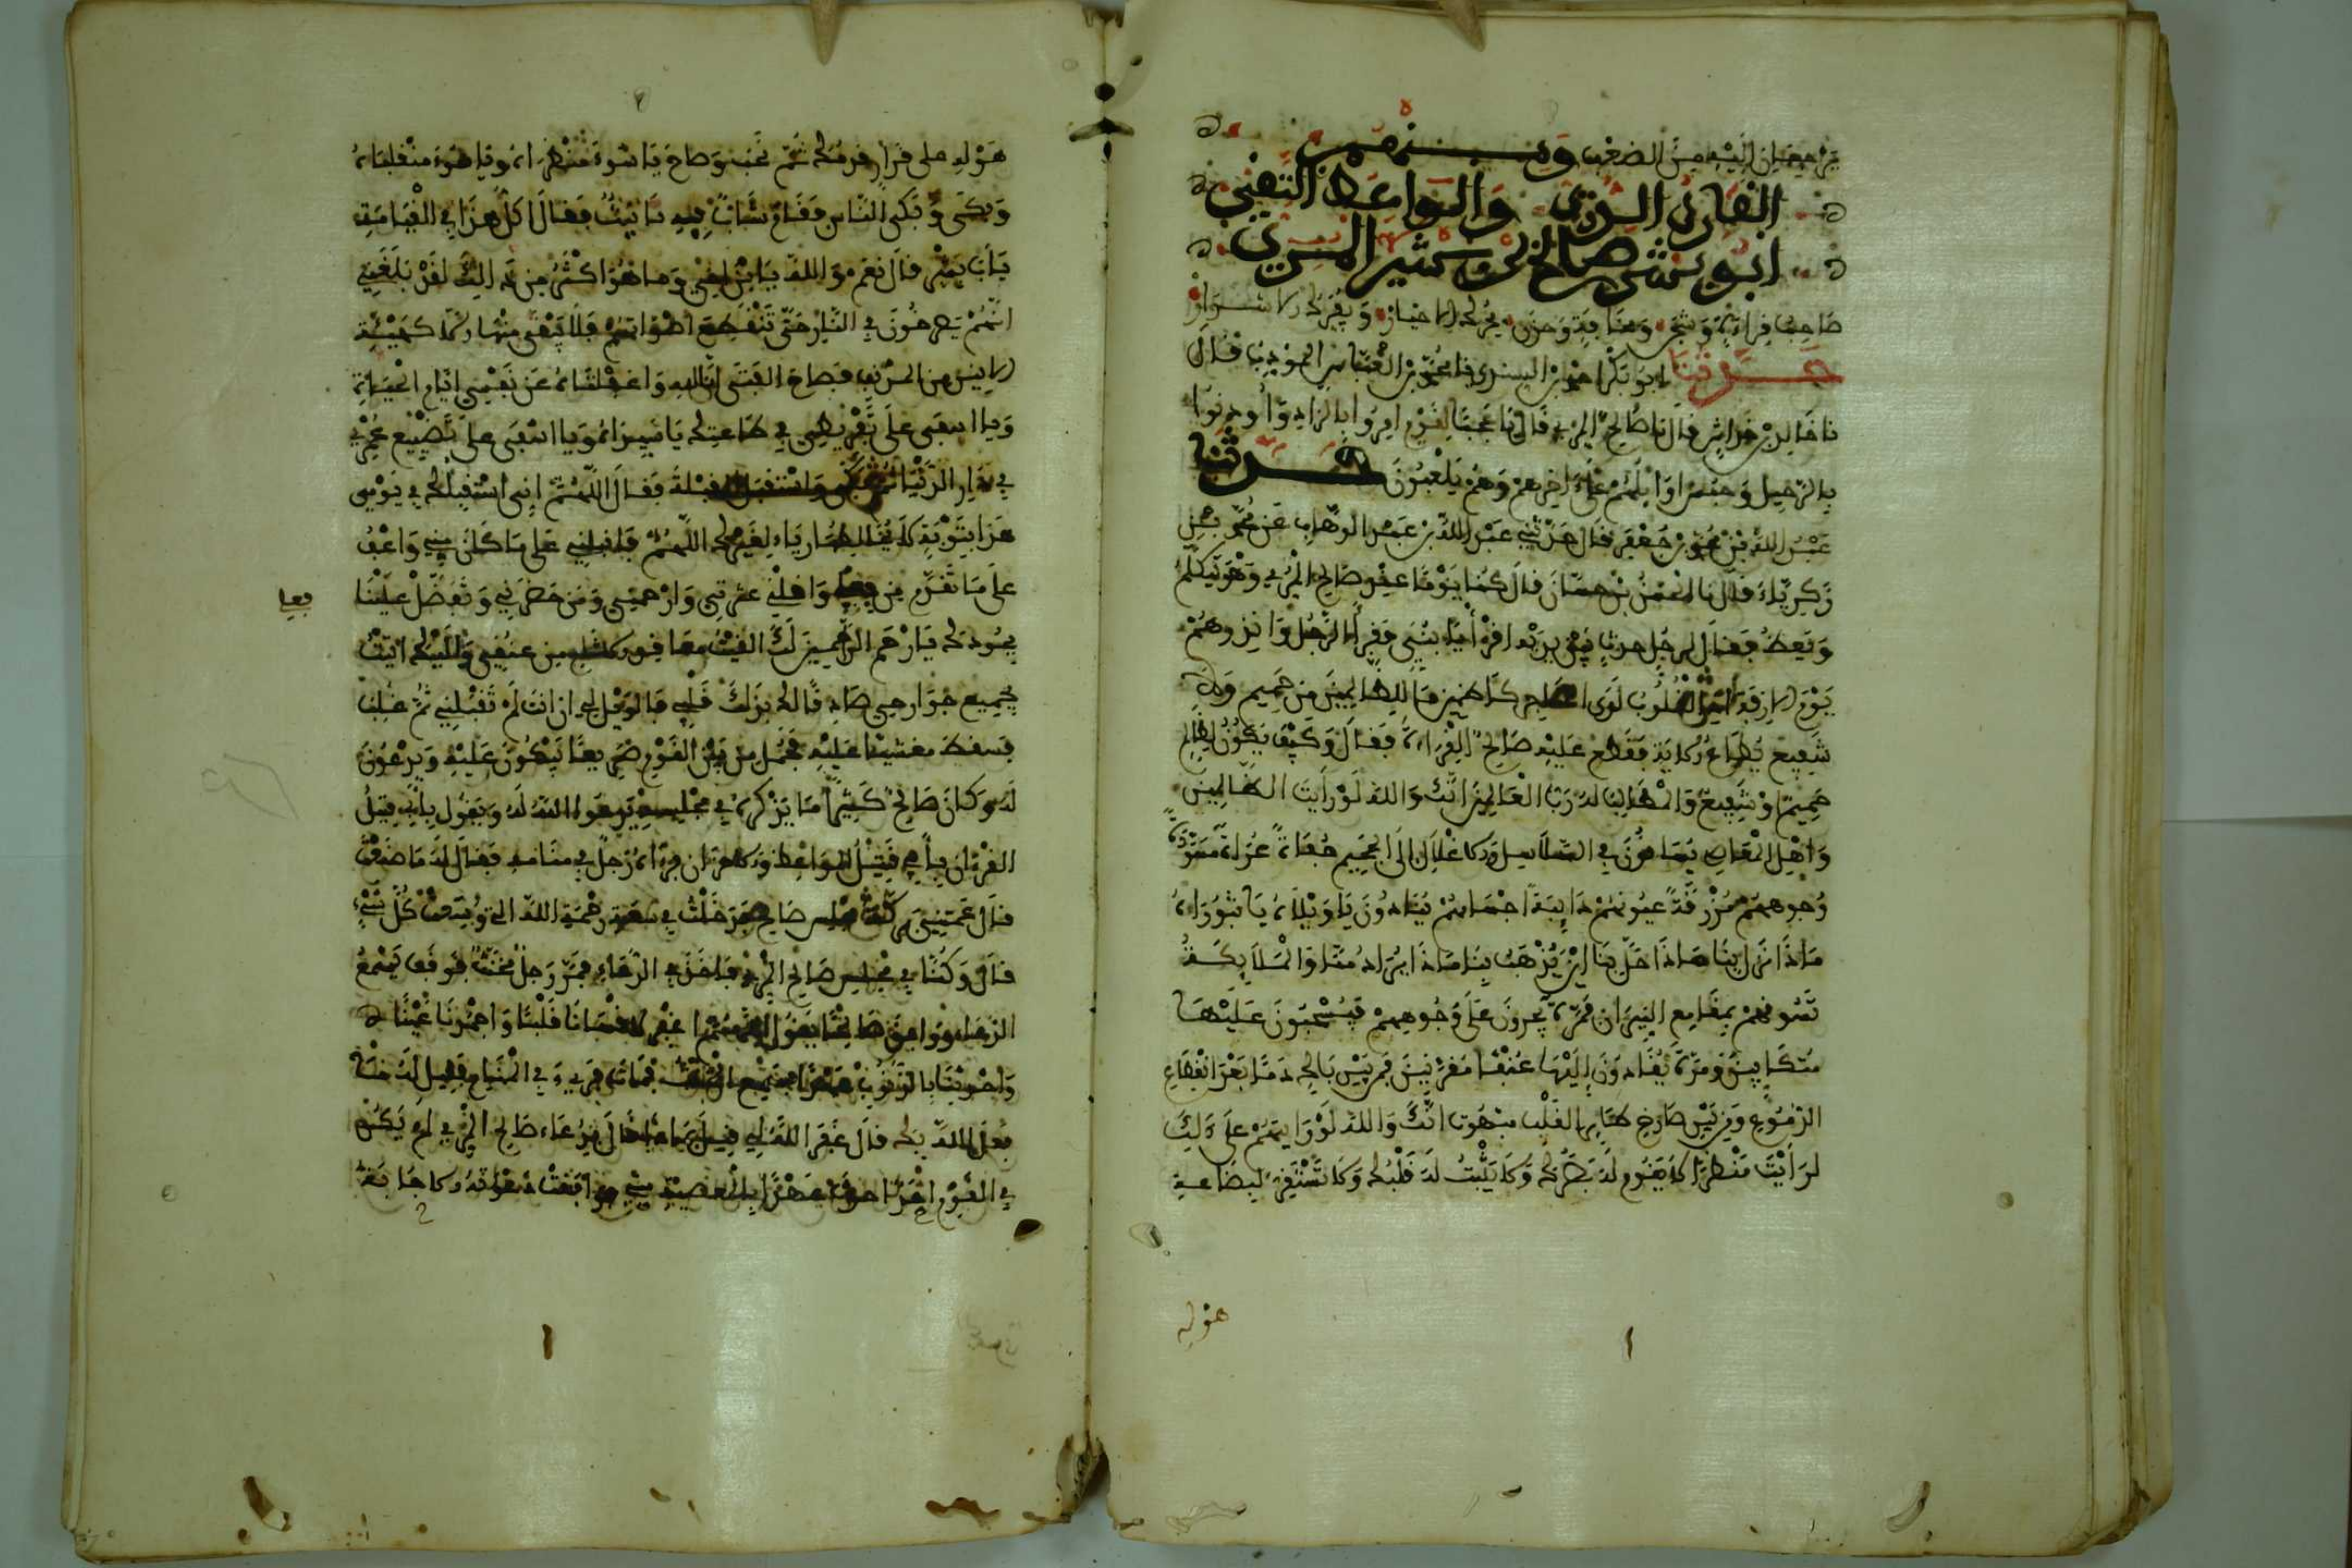 يزحفان إليه من الضعف ومنهم
القارئ الدري والواعظ التقي
أبو بشر صالح بن بشير المري
صاحب قراءة وشجى ومخافة وحزن يحرك الأخيار ويفرك الأشرار
حدثنا أبو بكر أحمد بن السندي نا محمد بن العباس المؤدب قال
نا خالد بن خداش قال نا صالح المري قال نا عجبا لقوم أمروا بالزاد وأوذنوا
بالرحيل وحبس أولهم على آخرهم وهم يلعبون حدثنا
عبد الله بن محمد بن جعفر قال حدثني عبد الله بن عبد الوهاب عن محمد بن
زكرياء قال نا قال كنا يوما عند صالح المري وهو يتكلم
ويعظ فقال لرجل حدث بين يديه اقرأ يا بني فقرأ الرجل وأنذرهم
يوم الأزفة إذ القلوب لدى الحناجر كاظمين ما للظالمين من حميم ولا
شفيع يطاع فقطع عليه صالح القراءة فقال وكيف يكون لظالم
حميم أو شفيع والمطالب له رب العالمين إنك والله لو رأيت الظالمين
وأهل المعاصي يساقون في السلاسل والأغلال إلى الجحيم حفاة عراة مسودة
وجوههم مزرقة عيونهم ذائبة أجسامهم ينادون يا ويلاه يا ثبوراه
ماذا نزل بنا ماذا حل بنا أين يذهب بنا ماذا يراد منا والملائكة
تسوقهم بمقامع النيران فمرة يجرون على وجوههم فيسحبون عليها
متكئين ومرة يقادون إليها عنقا مقرنين فمن بين باكي دما بعد انقطاع
الدموع ومن بين صارخ طائر القلب مبهوت إنك والله لو رأيتهم على ذلك
لرأيت منظرا لا يقوم له بصرك ولا يثبت له قلبك ولا تستقر لفضاعة
هوله
هوله على قرار قدمك ثم نحب وصاح يا سوء منظراه ويا سوء منقلباه
وبكى وبكى الناس فقام شاب به تانيث فقال أكل هذا في القيامة
يا أبا بشر قال نعم والله يا ابن أخي وما هو أكثر من ذلك لقد بلغني
أنهم يصرخون في النار حتى تنقطع أصواتهم فلا يبقى منها إلا كهيئة
الأنين من المدنف فصاح الفتى إنا لله واغفلتاه عن نفسي أيام الحياة
ويا أسفى على تفريطي في طاعتك يا سيداه ويا أسفى على تضييع عمري
في دار الدنيا ثم بكى واستقبل القبلة فقال اللهم إني أستقبلك في يومي
هذا بتوبة لا يخالطها رياء لغيرك اللهم فاقبلني على ما كان مني واعف
على ما تقدم من فعلي وأقلني عثرتي وارحمني ومن حضرني وتفضل علينا
فعلي
بجودك يا أرحم الراحمين لك ألقيت معاقد الآثام من عنقي وإليك أنبت
بجميع جوارحي صادقا لك بذلك قلبي فالويل لي إن أنت لم تقبلني ثم غلب
فسقط مغشيا عليه فحمل من بين القوم صريعا يبكون عليه ويدعون
له وكان صالح كثيرا ما يذكره في مجلسه يدعو الله له ويقول بأبي قتيل
القرآن بأبي قتيل المواعظ والأحزان فرآه رجل في منامه فقال له ما صنعت
قال عمتني بركة مجلس صالح فدخلت في سعة رحمة الله التي وسعت كل شيء
قال وكنا في مجلس صالح المري فأخذ في الدعاء فمر رجل مخنث فوقف يسمع
الدعاء ووافق صالحا يقول اللهم اغفر لأقسانا قلبا وأجمدنا عينا
وأحدثنا بالذنوب عهدا فسمع المخنث فمات فرئي في المنام فقيل له ما
فعل الله بك قال غفر الله لي قيل بماذا قال بدعاء صالح المري لم يكن
في القوم أحد أحدث عهدا بالمعصية مني فوافقت دعوته